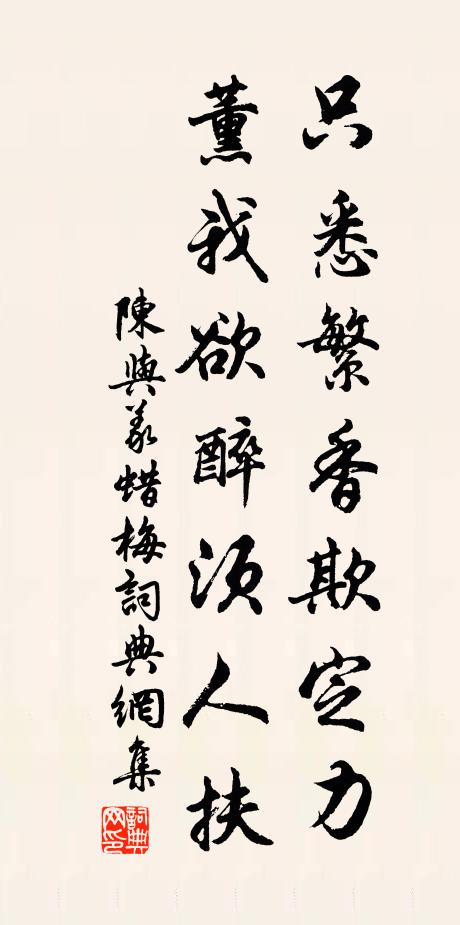 只悉繁香欺定力
薰我欲醉須人扶
陳與義蜡梅詞典網集
詞典
网印